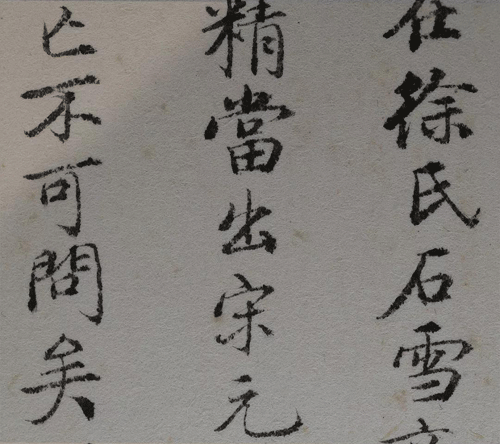 在徐氏石雪
精當出宋元
不可問矣